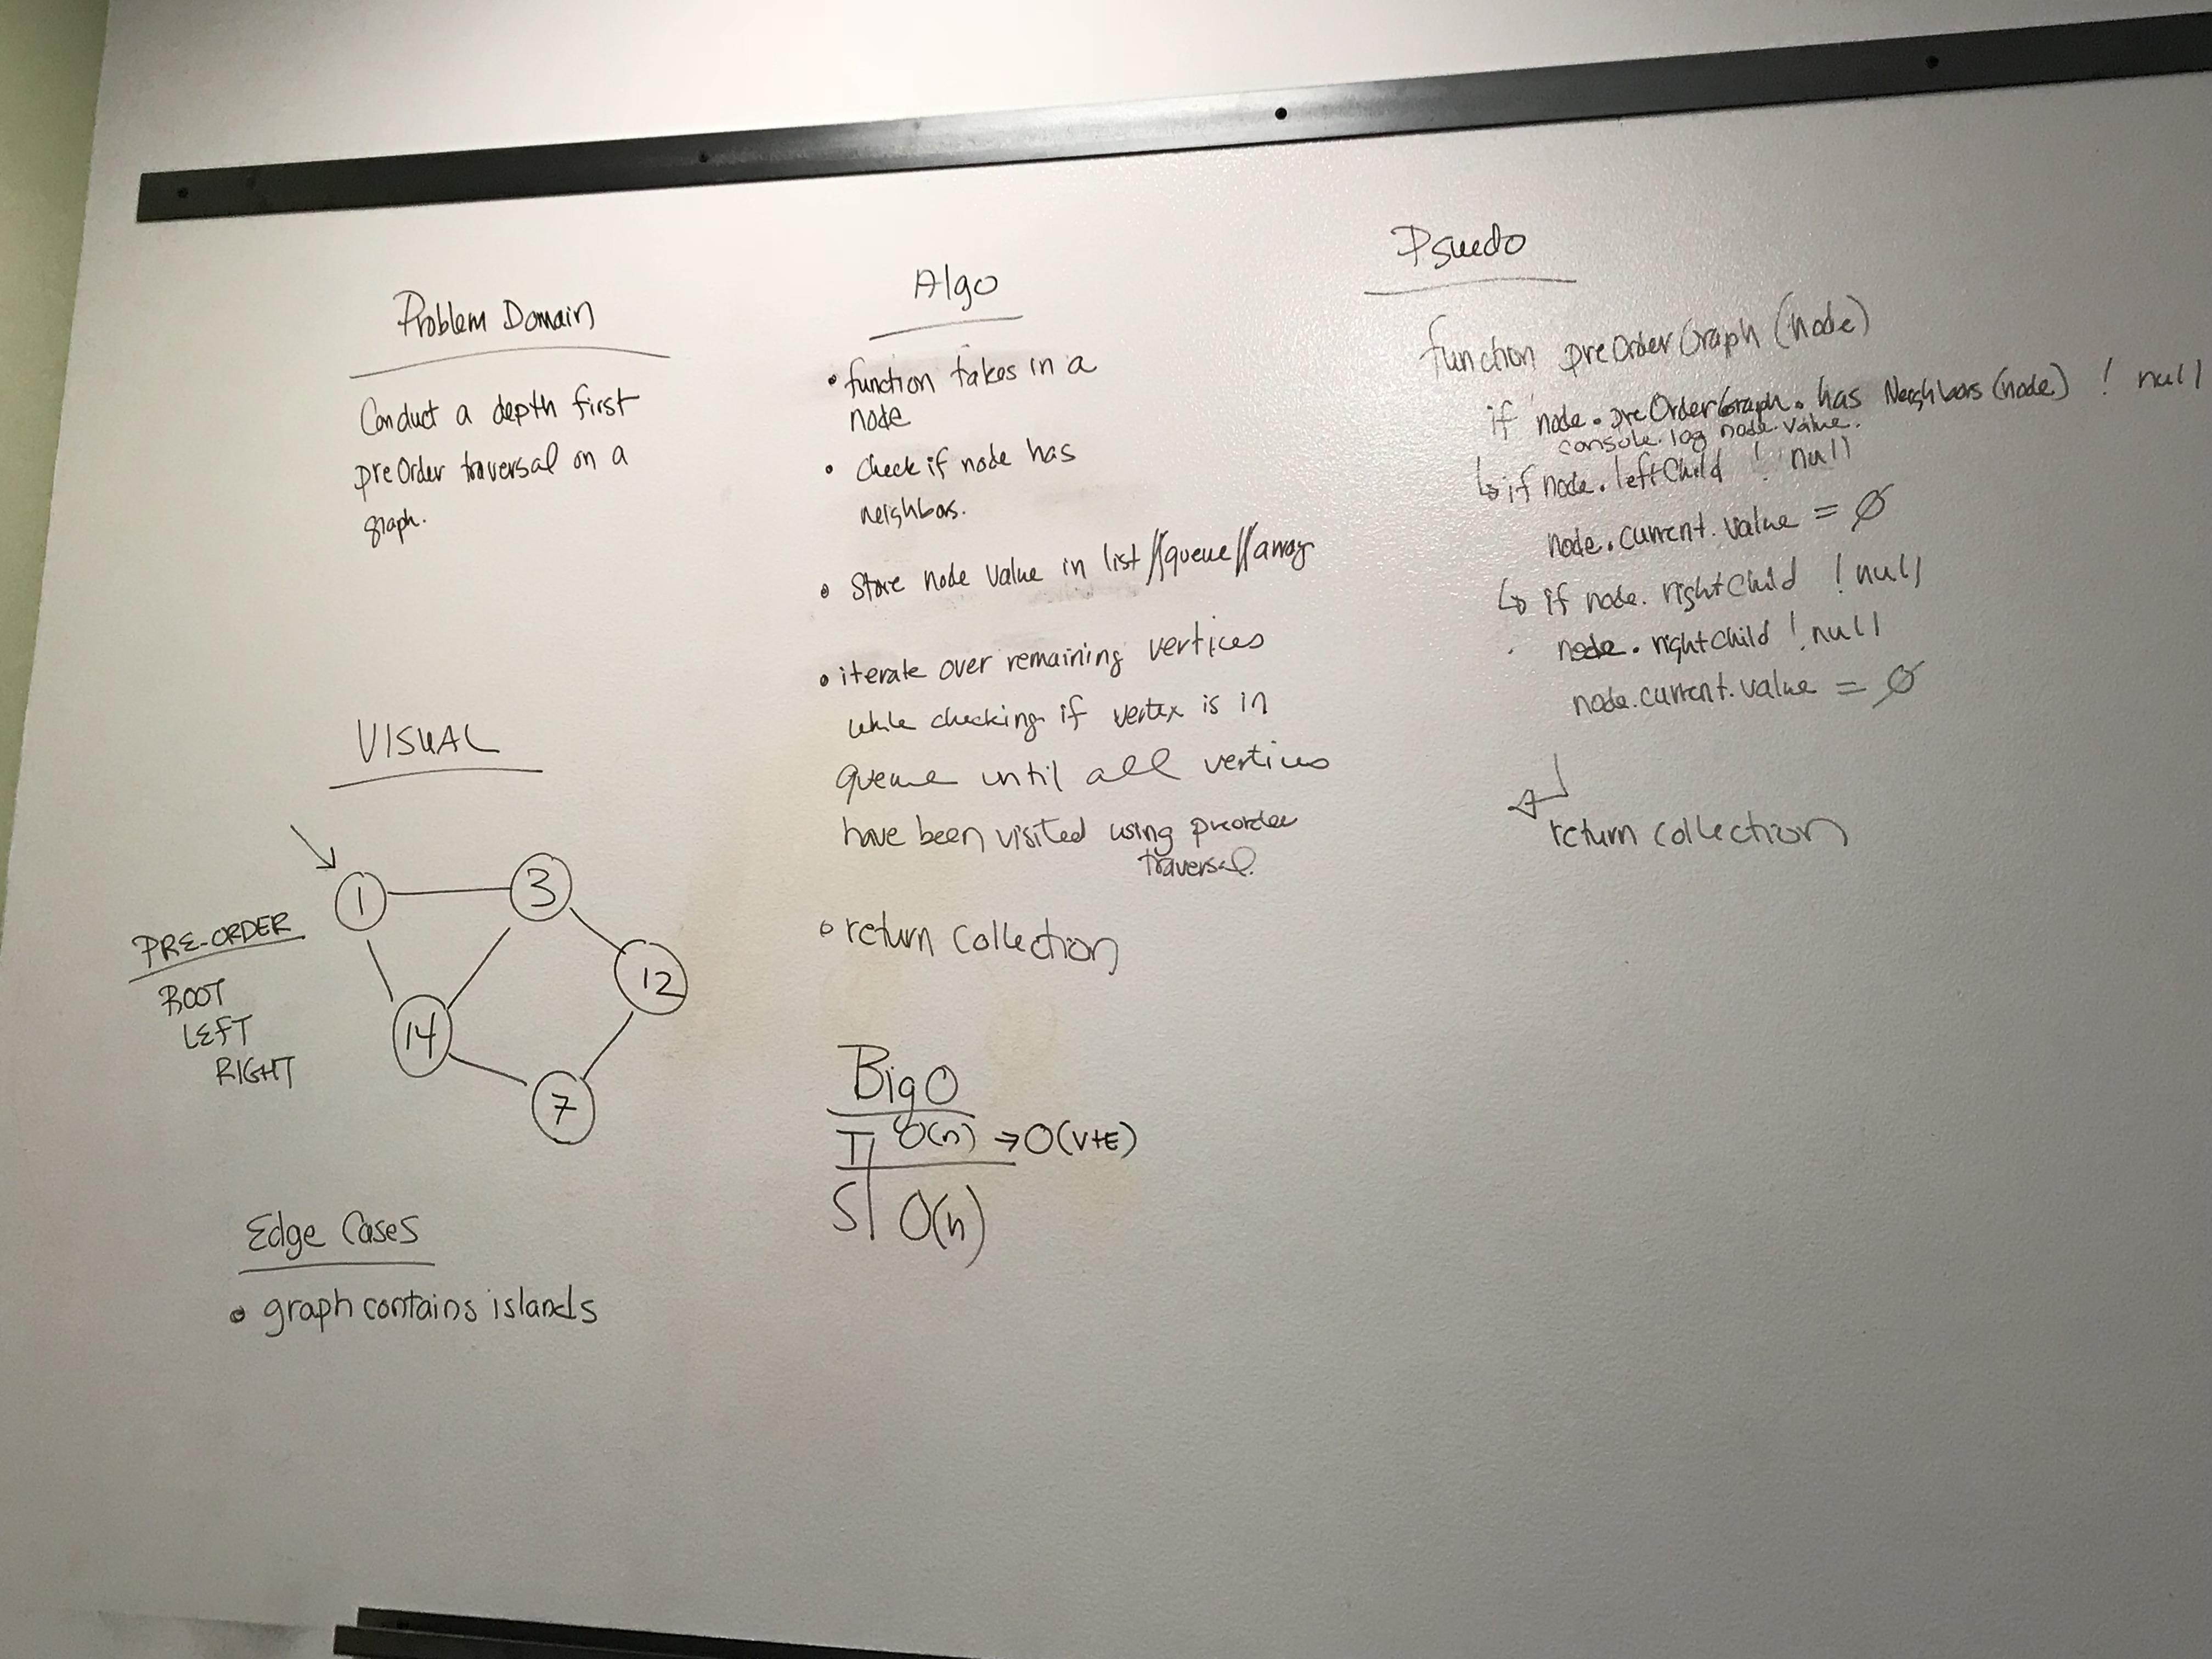 Problem Domain
Conduct a depth first
preOrder traversal on a
graph.
VISUAL
1
3
12
14
7
PRE-ORDER
ROOT
LEFT
RIGHT
Edge Cases
• graph contains islands
Algo
• function takes in a
node
• check if node has
neighbors.
• Store node value in list//queue//array
• iterate over remaining vertices
while checking if vertex is in
queue until all vertices
have been visited using preorder
traversal.
• return collection
Big O
T O(n) → O(V+E)
S O(n)
Psuedo
function preOrderGraph (node)
if node.preOrderGraph.has Neighbors(node) ! null
console.log node.value.
↳ if node.leftChild ! null
node.current.value = ∅
↳ if node.rightChild ! null
node.rightChild ! null
node.current.value = ∅
return collection